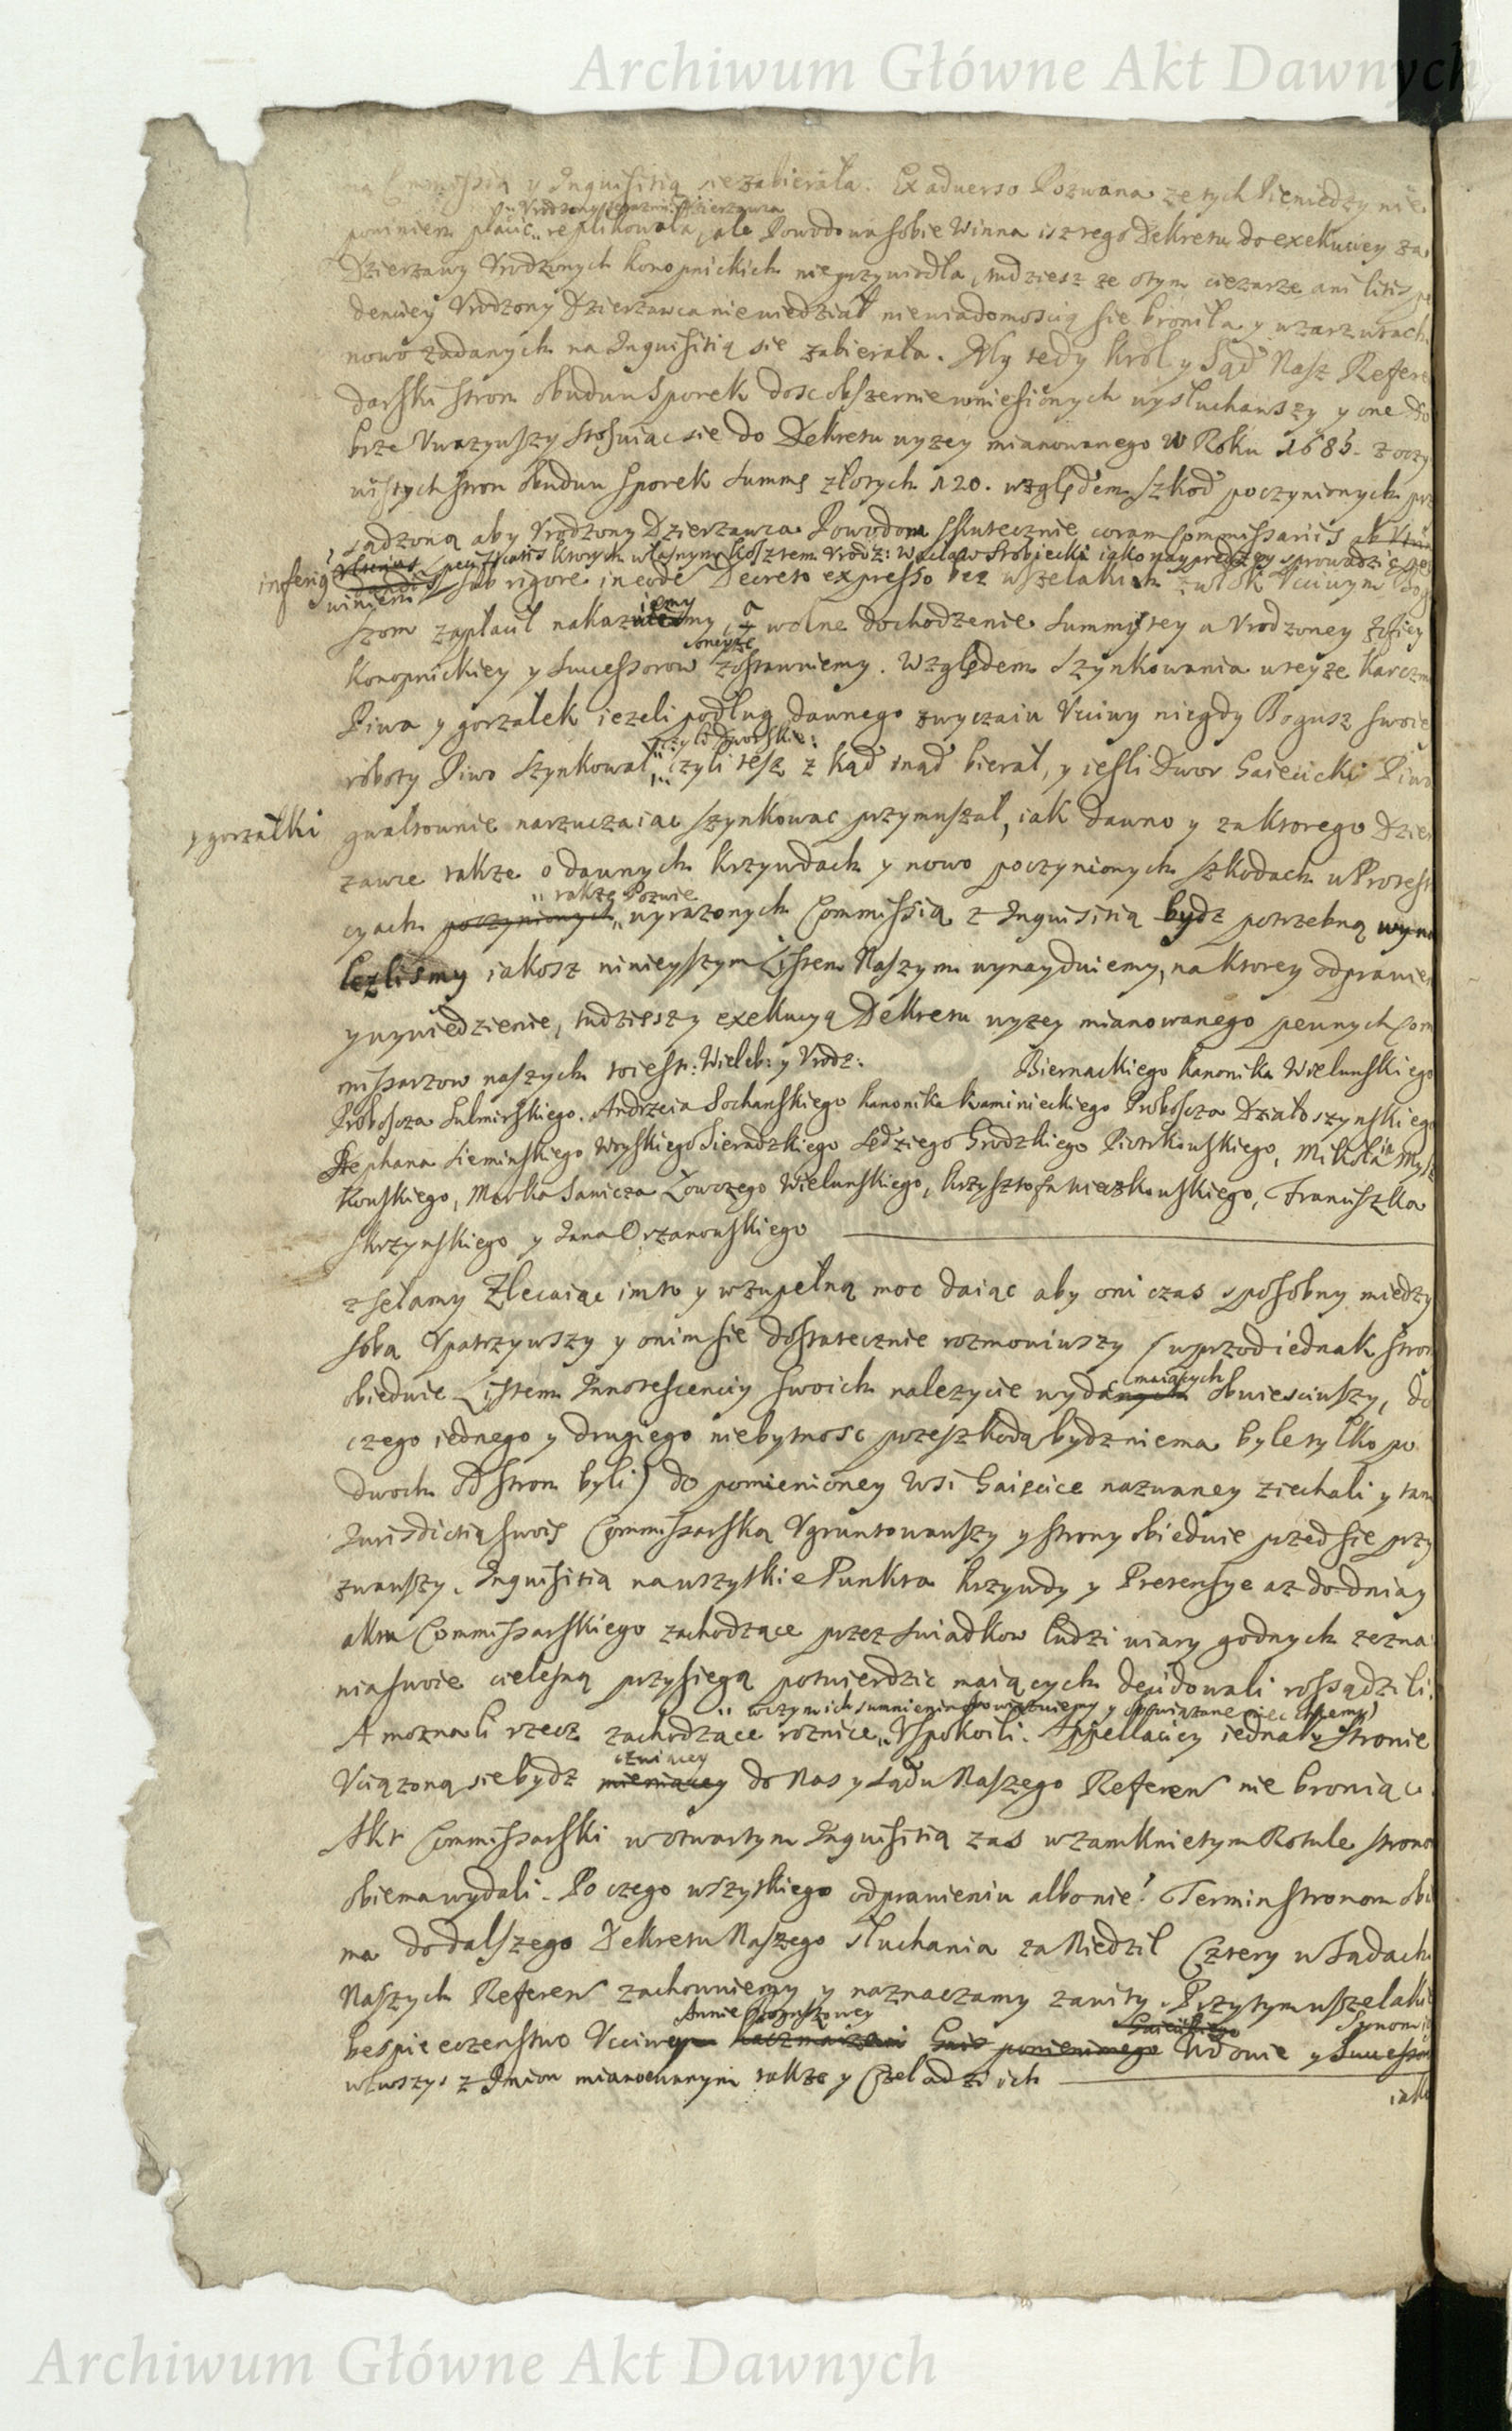 Archiwum Główne Akt Dawnych
na Commissią y Inquisitią sie zabierała. Ex aduerso Pozwana ze tych Pieniedzy nie
powinien płacic replikowała, ale Powodowa sobie Winna isz tego Dekretu do exekuciey za
Dzierzawy Vrodzonych Konopnickich nieprzywiodła, tudziesz ze o tym ciezarze ani litis pe
denciey Vrodzony Dzierzawca niewiedział niewiadomoscią sie broniła y w zarzutach
nowo zadanych na Inquisitią sie zabierała. My tedy Krol y Sąd Nasz Refere
darski stron obudwu sporek dosc obszernie wniesionych wysłuchawszy y one do
brze Vwazywszy stosuiąc sie do Dekretu wyzey mianowanego w Roku 1685. z oczy
wistych stron obudwu sporek summę złotych 120. względem szkod poczynionych prz
sądzoną aby Vrodzony Dzierzawca Powodom skutecznie coram Commissariis
inferiq specificatis ktorych własnym kosztem Vrodz: Wacław Stobiecki iako nayprędzey sprowadzic
winien sub rigore in eode Decreto expresso bez wszelakich zwłok Vciwym Bog
szom zapłacił nakazuiemy, a wolne dochodzenie summy tey u Vrodzoney Zofiey
Konopnickiey y Successorow oneyze zostawuiemy. Względem szynkowania w teyze Karczm
Piwa y gorzałek iezeli podług dawnego zwyczaiu Vciwy niegdy Bogusz swoie
czyli Dworskie:
roboty Piwo szynkował czyli tesz z kąd inąd bierał, y iesli Dwor Gaiecicki Piwa
y gorzałki gwałtownie narzucaiąc szynkowac przymuszał, iak dawno y za ktorego Dzier
zawce takze o dawnych krzywdach y nowo poczynionych szkodach w Protest
takze Pozwie
cyach poczynionych wyrazonych Commissią z Inquisitią bydz potrzebną wyna
lezlismy iakosz ninieyszym Listem Naszym wynayduiemy, na ktorey odprawie
y wywiedzienie, tudziesz y exekucyą Dekretu wyzey mianowanego pewnych Com
missarzow naszych Wieleb: y Vrodz: Biernackiego Kanonika Wielunskiego
Proboscza Lutmirskiego. Andrzeia Sochanskiego Kanonika Kaminieckiego Proboscza Działoszynskiego
Stephana Sieminskiego Woyskiego Sieradzkiego Sędziego Grodzkiego Piotrkowskiego, Mikołaia Mysz
kowskiego, Marka Sanicza Łowczego Wielunskiego, Krzysztofa Franciszka
Skrzynskiego y Jana Orzanowskiego
zsełamy Zlecaiąc im to y w zupełną moc daiąc aby oni czas sposobny miedzy
sobą Vpatrzywszy y onim sie dostatecznie rozmowiwszy (wprzod iednak stron
maiących
obiedwie Listem Innotescenciy swoich nalezycie wydanych obwiesciwszy, do
czego iednego y drugiego niebytnosc przeszkodą bydz niema byle tylko po
dwoch od stron byli) do pomienioney Wsi Gaięcice nazwaney ziechali y tam
Iurisdictią swoię Commissarską Vgruntowawszy y strony obiedwie przed sie przy
zwawszy. Inquisitią na wszystkie Punkta krzywdy y Pretensye az do dnia y
aktu Commissarskiego zachodzące przez swiadkow ludzi wiary godnych zezna
nia swoie cielesną przysiegą potwierdzic maiących decidowali rossądzili.
w czym ich sumnienie obowiązuiemy y obowiązane miec chcemy
A moznali rzecz zachodzące roznice Vspokoili. Appellaciey iednak Stronie
czuiącey
Vciązoną sie bydz mieniącey do Nas y Sądu Naszego Referen nie broniąc.
Akt Commissarski w otwartym Inquisitią zas w zamknietym Rotule strono
obiema wydali. Po czego wszystkiego odprawieniu albo nie! Termin stronom obi
ma do dalszego Dekretu Naszego słuchania za Niedzil Cztery w Sądach
Naszych Referen zachowuiemy y naznaczamy zawity. Przytym wszelakie
Annie Boguszowey Gaiecickiego Synom
bespieczenstwo Vciwey pomienionego Wdowie y Successo
wtwszys z Imion mianowanym takze y Czeladzi ich
iako
Archiwum Główne Akt Dawnych